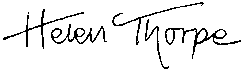 Helen Thorpe